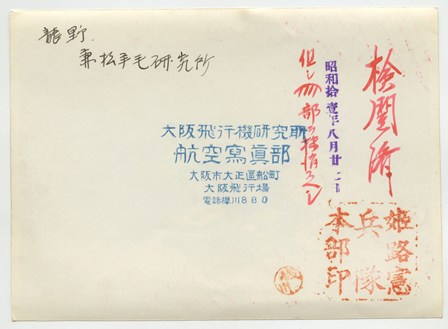 龍野
兼松羊毛研究所
検閲済
昭和拾壹年八月廿二日
但シ
大阪飛行機研究所
航空寫眞部
大阪市大正區船町
大阪飛行場
電話櫻川860
姫路憲
兵隊
本部印